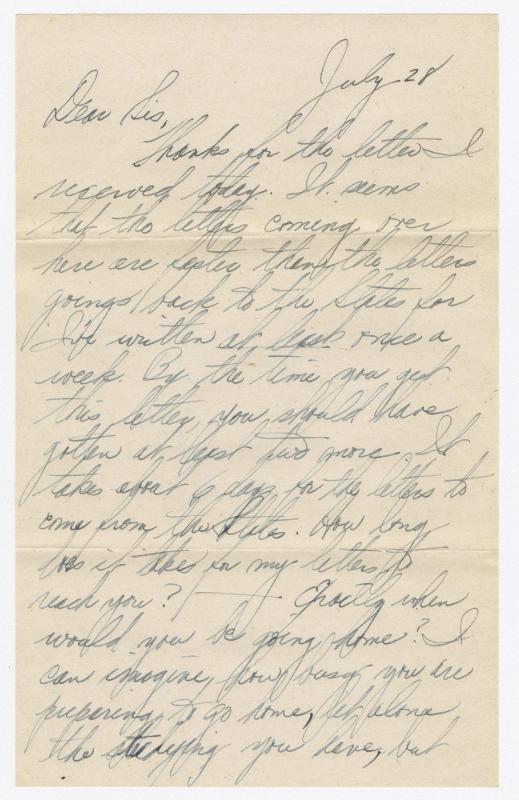 July 28
Dear Sis,
Thanks for the letter I
received today. It seems
that the letters coming over
here are faster than the letters
goings back to the States for
I've written at least once a
week. By the time you get
this letter, you should have
gotten at least two more. It
takes about 6 days for the letters to
come from the States. How long
does it take for my letters to
reach you? — Exactly when
would you be going home? I
can imagine how busy you are
preparing to go home, let alone
the studying you have, but